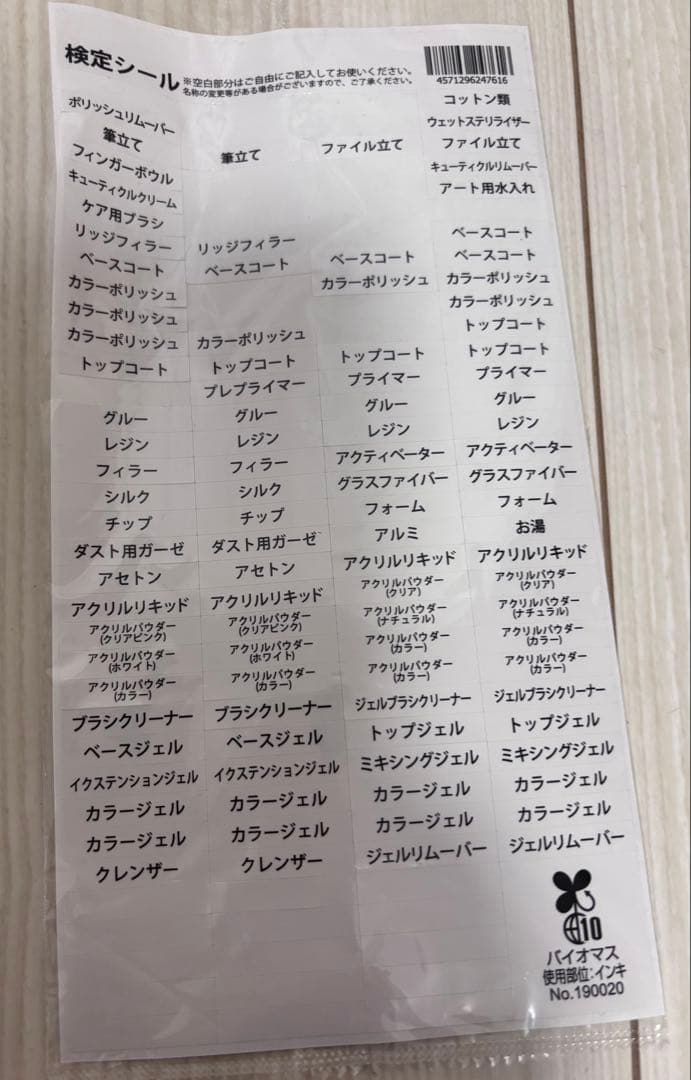 検定シール
※空白部分はご自由にご記入してお使いください。
名称の変更等がある場合がございますので、ご了承ください。
4571296247616
ポリッシュリムーバー
コットン類
筆立て
ウェットステリライザー
フィンガーボウル 筆立て ファイル立て ファイル立て
キューティクルクリーム キューティクルリムーバー
ケア用ブラシ アート用水入れ
リッジフィラー リッジフィラー ベースコート
ベースコート ベースコート ベースコート ベースコート
カラーポリッシュ カラーポリッシュ カラーポリッシュ
カラーポリッシュ カラーポリッシュ
カラーポリッシュ カラーポリッシュ トップコート
トップコート トップコート トップコート トップコート
プレプライマー プライマー プライマー
グルー グルー グルー グルー
レジン レジン レジン レジン
フィラー フィラー アクティベーター アクティベーター
シルク シルク グラスファイバー グラスファイバー
チップ チップ フォーム フォーム
ダスト用ガーゼ ダスト用ガーゼ アルミ お湯
アセトン アセトン アクリルリキッド アクリルリキッド
アクリルリキッド アクリルリキッド アクリルパウダー(クリア) アクリルパウダー(クリア)
アクリルパウダー(クリアピンク) アクリルパウダー(クリアピンク) アクリルパウダー(ナチュラル) アクリルパウダー(ナチュラル)
アクリルパウダー(ホワイト) アクリルパウダー(ホワイト) アクリルパウダー(カラー) アクリルパウダー(カラー)
アクリルパウダー(カラー) アクリルパウダー(カラー) アクリルパウダー(カラー) アクリルパウダー(カラー)
ブラシクリーナー ブラシクリーナー ジェルブラシクリーナー ジェルブラシクリーナー
ベースジェル ベースジェル トップジェル トップジェル
イクステンションジェル イクステンションジェル ミキシングジェル ミキシングジェル
カラージェル カラージェル カラージェル カラージェル
カラージェル カラージェル カラージェル カラージェル
クレンザー クレンザー ジェルリムーバー ジェルリムーバー
10
バイオマス
使用部位:インキ
No.190020